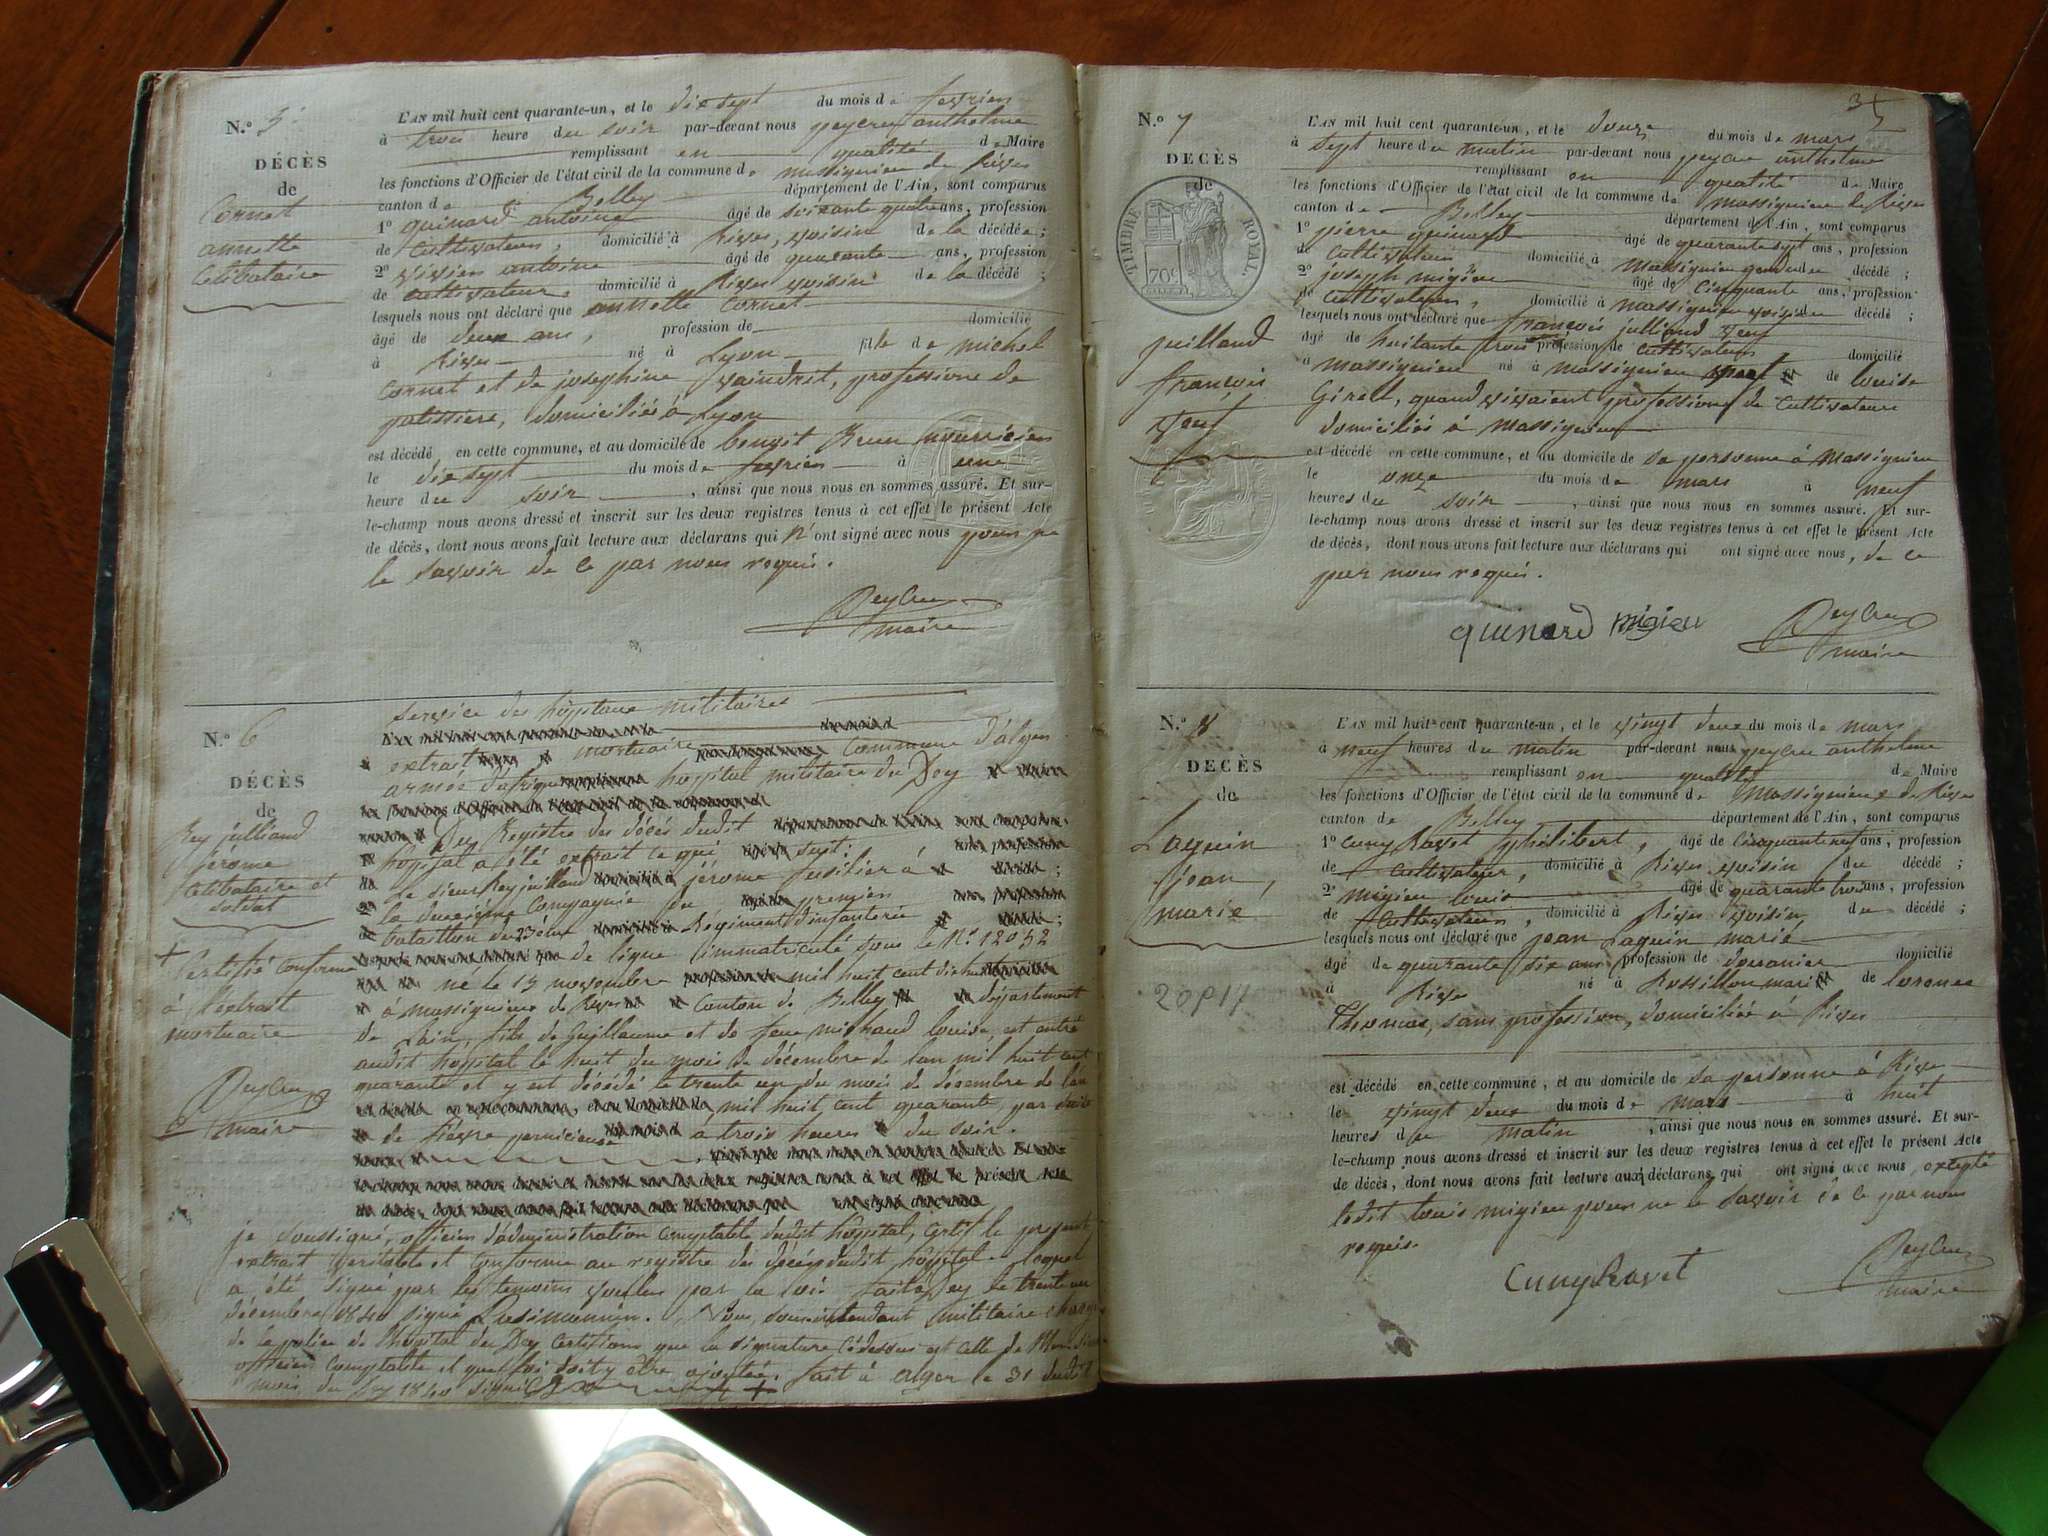 N.° 5
DÉCÈS
de
Cornet
annette
Célibataire
L'AN mil huit cent quarante-un, et le dix sept du mois de fevrier
à trois heure du soir par-devant nous peycru anthelme
remplissant en qualité de Maire
les fonctions d'Officier de l'état civil de la commune de massignieu de Rives
canton de Belley département de l'Ain, sont comparus
1° guinard antoine âgé de soixante quatre ans, profession
de Cultivateur, domicilié à Rives, voisin de la décédée;
2° vivien antoine âgé de quarante ans, profession
de Cultivateur, domicilié à Rives voisin de la décédé;
lesquels nous ont déclaré que annette Cornet
âgé de deux ans, profession de domicilié
à Rives né à Lyon fille de michel
Cornet et de josephine profession de
patissiere, domiciliés à Lyon
est décédé en cette commune, et au domicile de benoit Brun nourricier
le dix sept du mois de fevrier à une
heure du soir, ainsi que nous nous en sommes assuré. Et sur-
le-champ nous avons dressé et inscrit sur les deux registres tenus à cet effet le présent Acte
de décès, dont nous avons fait lecture aux déclarans qui n'ont signé avec nous pour ne
le savoir de ce par nous requis.
Peycru
maire
N.° 6
DÉCÈS
de
Rey julliand
jérome
Célibataire et
soldat
+ Certifié conforme
à l'extrait
mortuaire
Peycru
maire
service des hôpitaux militaires
extrait mortuaire commune d'alger
armée d'afrique hôpital militaire du Dey
Du Registre des décès dudit
hôpital a été extrait ce qui suit:
Le sieur Rey juilland jérome fusilier à
la deuxième Compagnie du premier
bataillon du 23ème Régiment d'infanterie
de ligne immatriculé sous le N° 12052
né le 13 novembre mil huit cent dix huit
à massignieu de Rives canton de Belley département
de Lain, fils de Guillaume et de feue michaud louise, est entré
audit hôpital le huit du mois de décembre de l'an mil huit cent
quarante et y est décédé le trente un du mois de décembre de l'an
mil huit cent quarante, par suite
de fièvre pernicieuse à trois heures du soir.
je soussigné, officier d'administration comptable dudit hôpital, certifie le présent
extrait véritable et conforme au registre des décès dudit hôpital lequel
a été signé par les temoins voulus par la loi fait à Dey le trente un
décembre 1840 signé Nous, sous-intendant militaire chargé
de la police de l'hôpital du Dey certifions que la signature cidessus est celle de
officier comptable et que foi doit y être ajoutée, fait à alger le 31 dudit
mois 1840 signé
35
N.° 7
DÉCÈS
de
TIMBRE ROYAL.
70c
juilland
françois
veuf
L'AN mil huit cent quarante-un, et le douze du mois de mars
à sept heure du matin par-devant nous peycru anthelme
remplissant en qualité de Maire
les fonctions d'Officier de l'état civil de la commune de massignieu de Rives
canton de Belley département de l'Ain, sont comparus
1° pierre guinard âgé de quarante sept ans, profession
de Cultivateur domicilié à Massignieu gendre du décédé;
2° joseph migieu âgé de Cinquante ans, profession
de Cultivateur, domicilié à massignieu voisin du décédé;
lesquels nous ont déclaré que françois julliand veuf
âgé de huitante trois profession de cultivateur domicilié
à massignieu né à massignieu de louise
Girel, quand vivaient profession de Cultivateur
domiciliés à massignieu
est décédé en cette commune, et au domicile de sa personne à Massignieu
le onze du mois de mars à neuf
heures du soir, ainsi que nous nous en sommes assuré. Et sur-
le-champ nous avons dressé et inscrit sur les deux registres tenus à cet effet le présent Acte
de décès, dont nous avons fait lecture aux déclarans qui ont signé avec nous, de ce
par nous requis.
guinard migieu Peycru
maire
N.° 8
DÉCÈS
de
Laguin
jean,
marié
20P17
L'AN mil huit cent quarante-un, et le vingt deux du mois de mars
à neuf heures du matin par-devant nous peycru anthelme
remplissant en qualité de Maire
les fonctions d'Officier de l'état civil de la commune de Massignieux de Rives
canton de Belley département de l'Ain, sont comparus
1° Cuny Ravet philibert, âgé de cinquante neuf ans, profession
de Cultivateur, domicilié à Rives voisin du décédé;
2° migieu louis âgé de quarante trois ans, profession
de Cultivateur, domicilié à Rives voisin du décédé;
lesquels nous ont déclaré que jean Laguin marié
âgé de quarante six ans profession de domicilié
à Rives né à Rossillon mari de
Thomas, sans profession, domiciliés à Rives
est décédé en cette commune, et au domicile de sa personne à Rives
le vingt deux du mois de mars à huit
heures du matin, ainsi que nous nous en sommes assuré. Et sur-
le-champ nous avons dressé et inscrit sur les deux registres tenus à cet effet le présent Acte
de décès, dont nous avons fait lecture aux déclarans qui ont signé avec nous excepté
ledit louis migieu pour ne le savoir de ce par nous
requis.
Cuny Ravet Peycru
maire